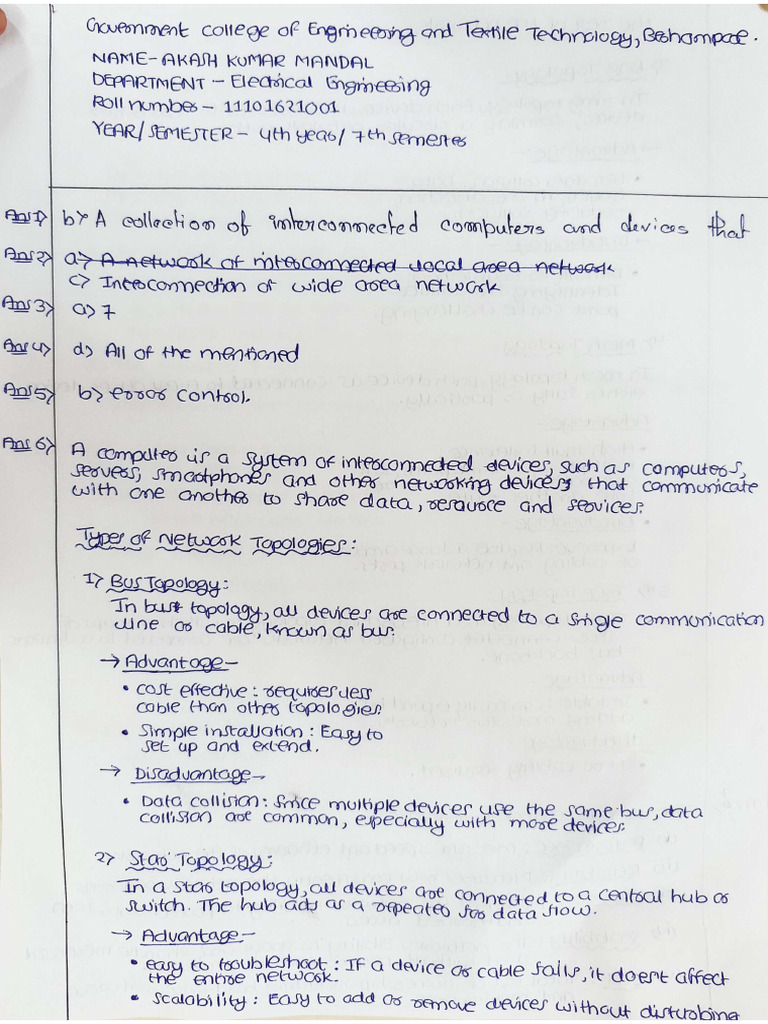 Government college of Engineering and Textile Technology, Berhampore.
NAME- AKASH KUMAR MANDAL
DEPARTMENT - Electrical Engineering
Roll number - 11101621001
YEAR/SEMESTER - 4th year/ 7th semester
Ans 1) b) A collection of interconnected computers and devices that
Ans 2) a) A network of interconnected local area network
c) Interconnection of wide area network
Ans 3) a) 7
Ans 4) d) All of the mentioned
Ans 5) b) error control.
Ans 6) A computer is a system of interconnected devices, such as computers,
servers, smartphones and other networking devices that communicate
with one another to share data, resource and services.
Types of Network Topologies:
1) Bus Topology:
In bus topology, all devices are connected to a single communication
line or cable, known as bus.
→ Advantage -
• cost effective : requires less
cable than other topologies
• Simple installation : Easy to
set up and extend.
→ Disadvantage -
• Data collision : Since multiple devices use the same bus, data
collision are common, especially with more devices
2) Star Topology:
In a star topology, all devices are connected to a central hub or
switch. The hub acts as a repeater for data flow.
→ Advantage -
• easy to troubleshoot : If a device or cable fails, it doesn't affect
the entire network.
• Scalability : Easy to add or remove devices without disturbing